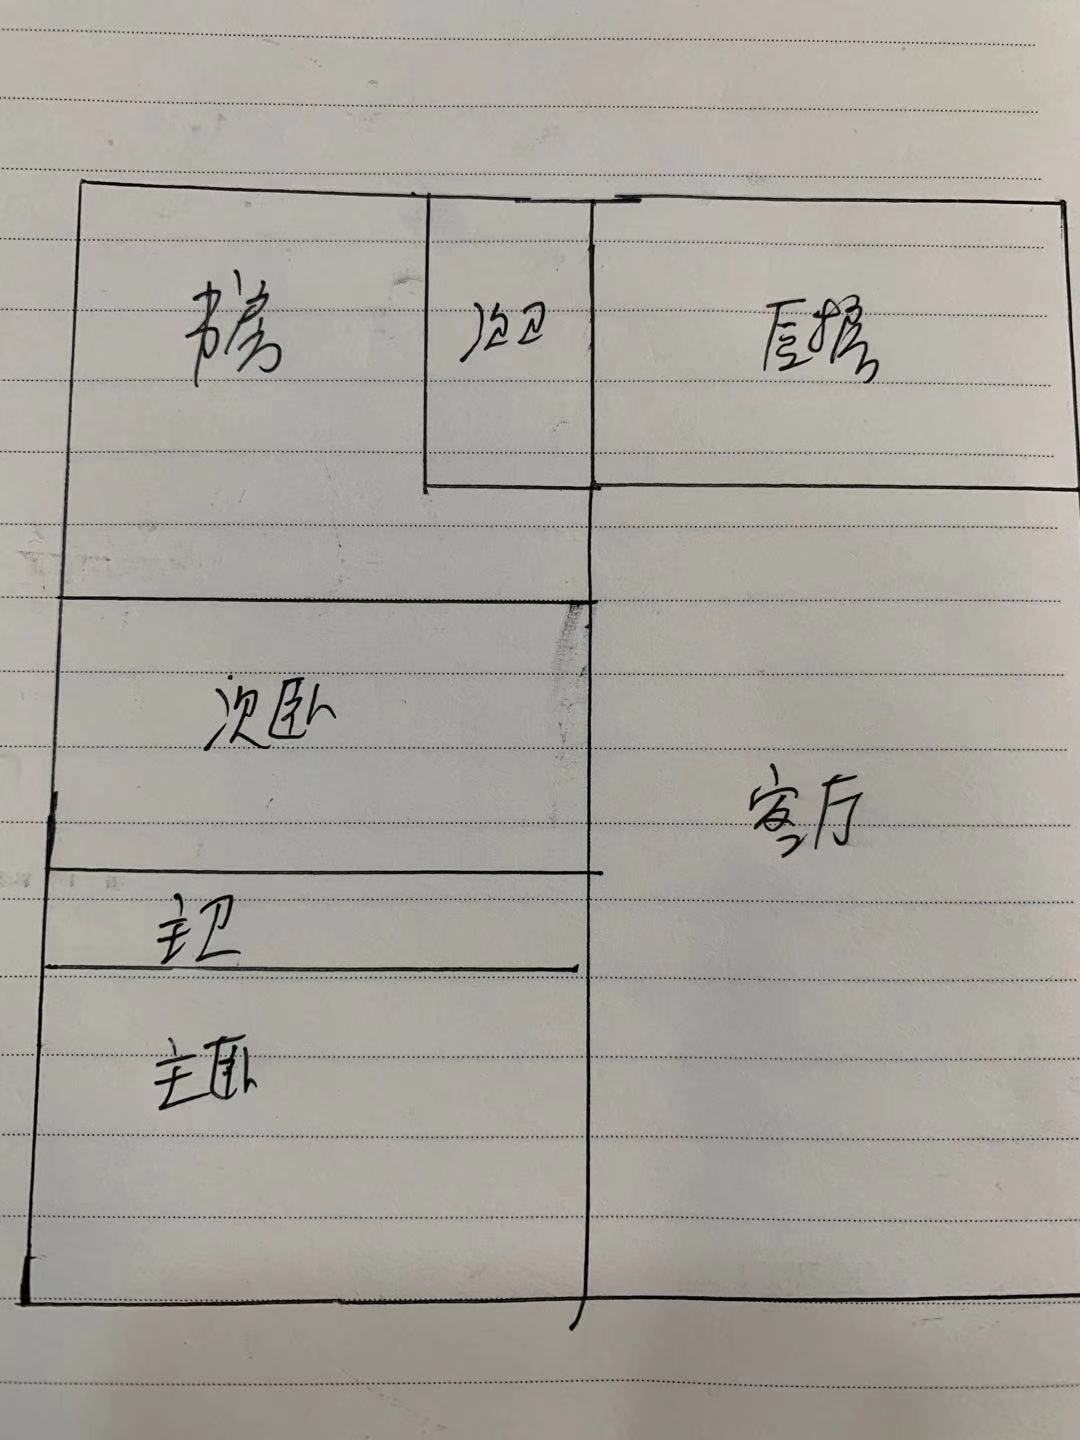 书房
次卫
厨房
次卧
客厅
主卫
主卧